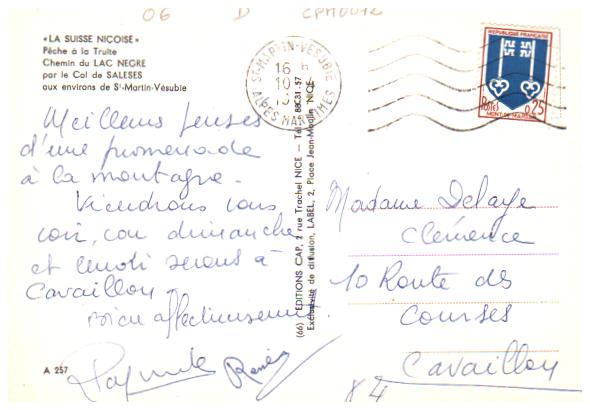 06 D CPM0072
«LA SUISSE NIÇOISE»
Pêche à la Truite
Chemin du LAC NEGRE
par le Col de SALESES
aux environs de St-Martin-Vésubie
ST-MARTIN-VESUBIE
16 H
10
ALPES MARITIMES
REPUBLIQUE FRANÇAISE
Postes 0,25
MONT-DE-MARSAN
Meilleures pensées
d'une promenade
à la montagne.
Viendrons vous
voir, dimanche
et serons à
Cavaillon.
Bien affectueusement
René
(66) EDITIONS CAP, 2 rue Trachel NICE — Tél. 88-31-57
Exclusivité de diffusion, LABEL, 2, Place Jean-Moulin NICE
Madame Delaye
Clémence
10 Route des
Courses
Cavaillon
84
A 257